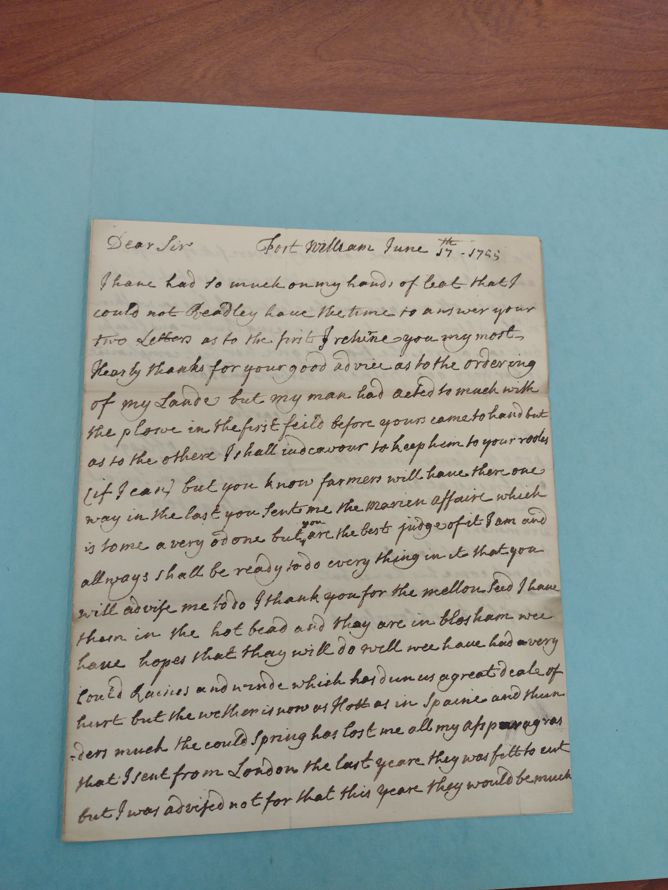 Dear Sir Fort William June 17th - 1755
I have had so much on my hands of leat that I
could not Readley have the time to answer your
two Letters as to the first I you my most
Hearly thanks for your good advice as to the ordering
of my Lande but my man had acted to much with
the plowe in the first feild before yours came to hand but
as to the othere I shall indeavour to keep him to your rooles
(if I can) but you know farmers will have there one
way in the last you sent me the affaire which
is to me a very od one but you are the best judge of it I am and
allways shall be ready to do every thing in it that you
will advise me to do I thank you for the mellon Seed I have
them in the hot bead and thay are in blosham wee
have hopes that thay will do well wee have had a very
Could Raines and winde which has dun us a great deale of
hurt but the wether is now as Hott as in Spaine and thun
-ders much the could Spring has lost me all my asparagras
that I sent from London the last yeare they was fitt to cut
but I was advised not for that this yeare they would be much